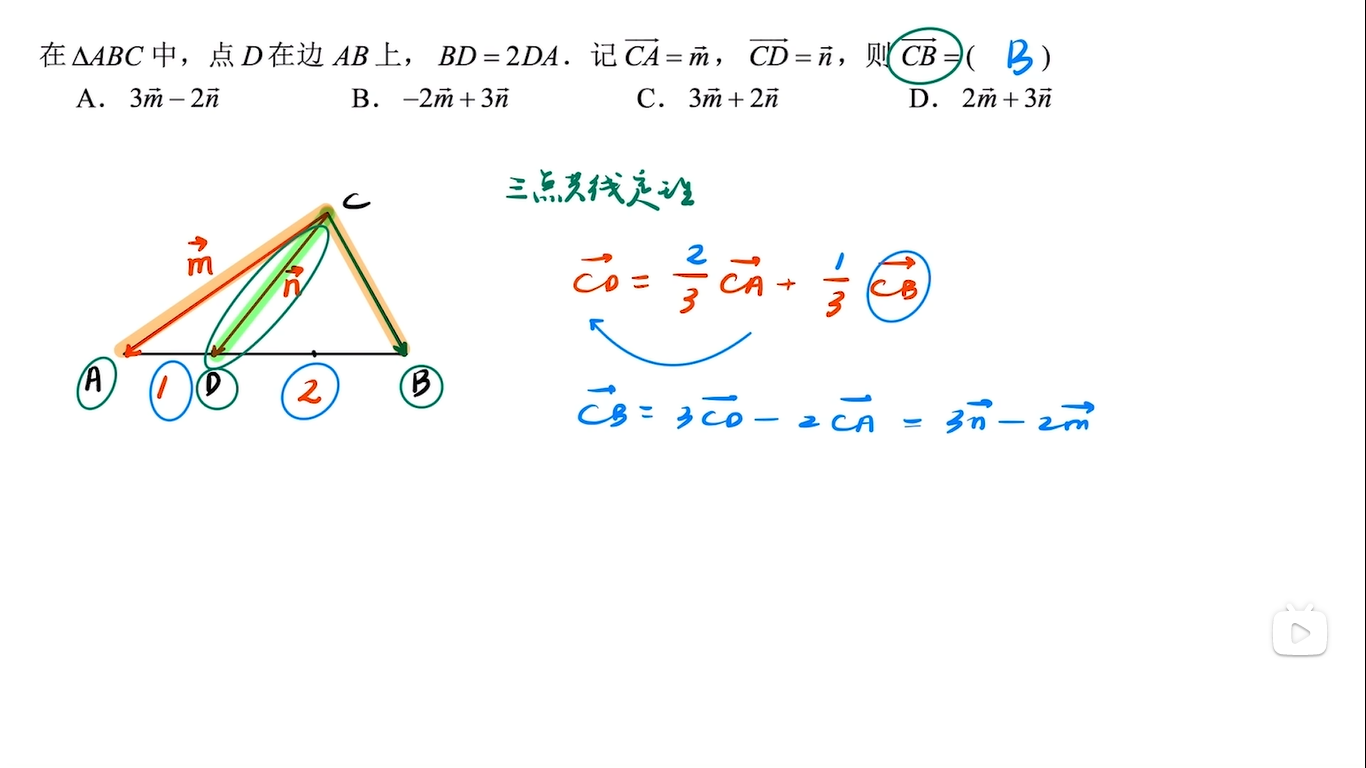 在 ΔABC 中，点 D 在边 AB 上， BD = 2DA．记 $\overrightarrow{CA} = \vec{m}$， $\overrightarrow{CD} = \vec{n}$，则 $\overrightarrow{CB}$ =( B )
A． $3\vec{m} - 2\vec{n}$ B． $-2\vec{m} + 3\vec{n}$ C． $3\vec{m} + 2\vec{n}$ D． $2\vec{m} + 3\vec{n}$
三点共线定理
C
$\vec{m}$
$\vec{n}$
$\overrightarrow{CD} = \frac{2}{3} \overrightarrow{CA} + \frac{1}{3} \overrightarrow{CB}$
A 1 D 2 B
$\overrightarrow{CB} = 3\overrightarrow{CD} - 2\overrightarrow{CA} = 3\vec{n} - 2\vec{m}$